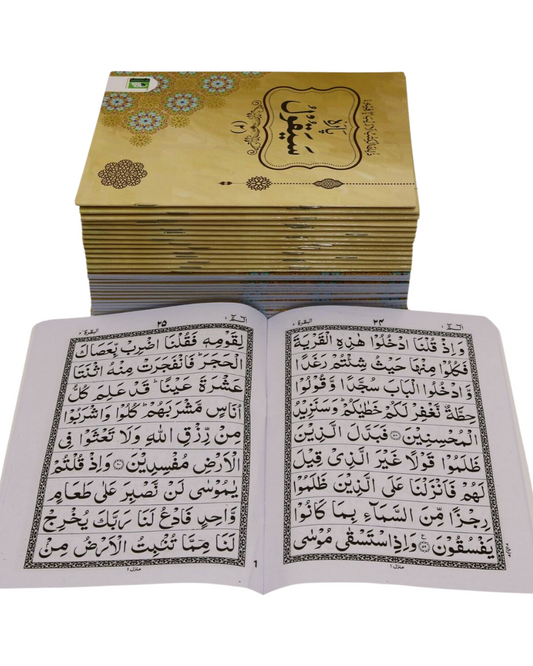 پارہ
سَيَقُولُ
(٢)
الٓمّٓ ١
٢٤
البقرة ٢
وَاِذْ قُلْنَا ادْخُلُوْا هٰذِهِ الْقَرْيَةَ
فَكُلُوْا مِنْهَا حَيْثُ شِئْتُمْ رَغَدًا
وَّادْخُلُوا الْبَابَ سُجَّدًا وَّقُوْلُوْا
حِطَّةٌ نَّغْفِرْ لَكُمْ خَطٰيٰكُمْ ؕ وَسَنَزِيْدُ
الْمُحْسِنِيْنَ ﴿٥٨﴾ فَبَدَّلَ الَّذِيْنَ
ظَلَمُوْا قَوْلًا غَيْرَ الَّذِيْ قِيْلَ
لَهُمْ فَاَنْزَلْنَا عَلَى الَّذِيْنَ ظَلَمُوْا
رِجْزًا مِّنَ السَّمَآءِ بِمَا كَانُوْا
يَفْسُقُوْنَ ﴿٥٩﴾ وَاِذِ اسْتَسْقٰى مُوْسٰى
منزل ١
الٓمّٓ ١
٢٥
البقرة ٢
لِقَوْمِهٖ فَقُلْنَا اضْرِبْ بِّعَصَاكَ
الْحَجَرَ ؕ فَانْفَجَرَتْ مِنْهُ اثْنَتَا
عَشْرَةَ عَيْنًا ؕ قَدْ عَلِمَ كُلُّ
اُنَاسٍ مَّشْرَبَهُمْ ؕ كُلُوْا وَاشْرَبُوْا
مِنْ رِّزْقِ اللّٰهِ وَلَا تَعْثَوْا فِى
الْاَرْضِ مُفْسِدِيْنَ ﴿٦٠﴾ وَاِذْ قُلْتُمْ
يٰمُوْسٰى لَنْ نَّصْبِرَ عَلٰى طَعَامٍ
وَّاحِدٍ فَادْعُ لَنَا رَبَّكَ يُخْرِجْ
لَنَا مِمَّا تُنْۢبِتُ الْاَرْضُ مِنْ
منزل ١
1